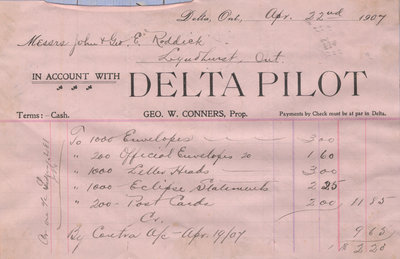 Delta, Ont, Apr. 22nd 1907
Messrs John & Geo. E. Roddick.
Lyndhurst, Ont.
IN ACCOUNT WITH DELTA PILOT
GEO. W. CONNERS, Prop.
Terms:- Cash.
Payments by Check must be at par in Delta.
To 1000 Envelopes 3 00
" 200 Official Envelopes 20 1 60
" 1000 Letter Heads 3 00
" 1000 Eclipse Statements 2 25
" 200 - Post Cards 2 00 11 85
Cr.
By Contra A/c - Apr 19/07 9 65
2 20